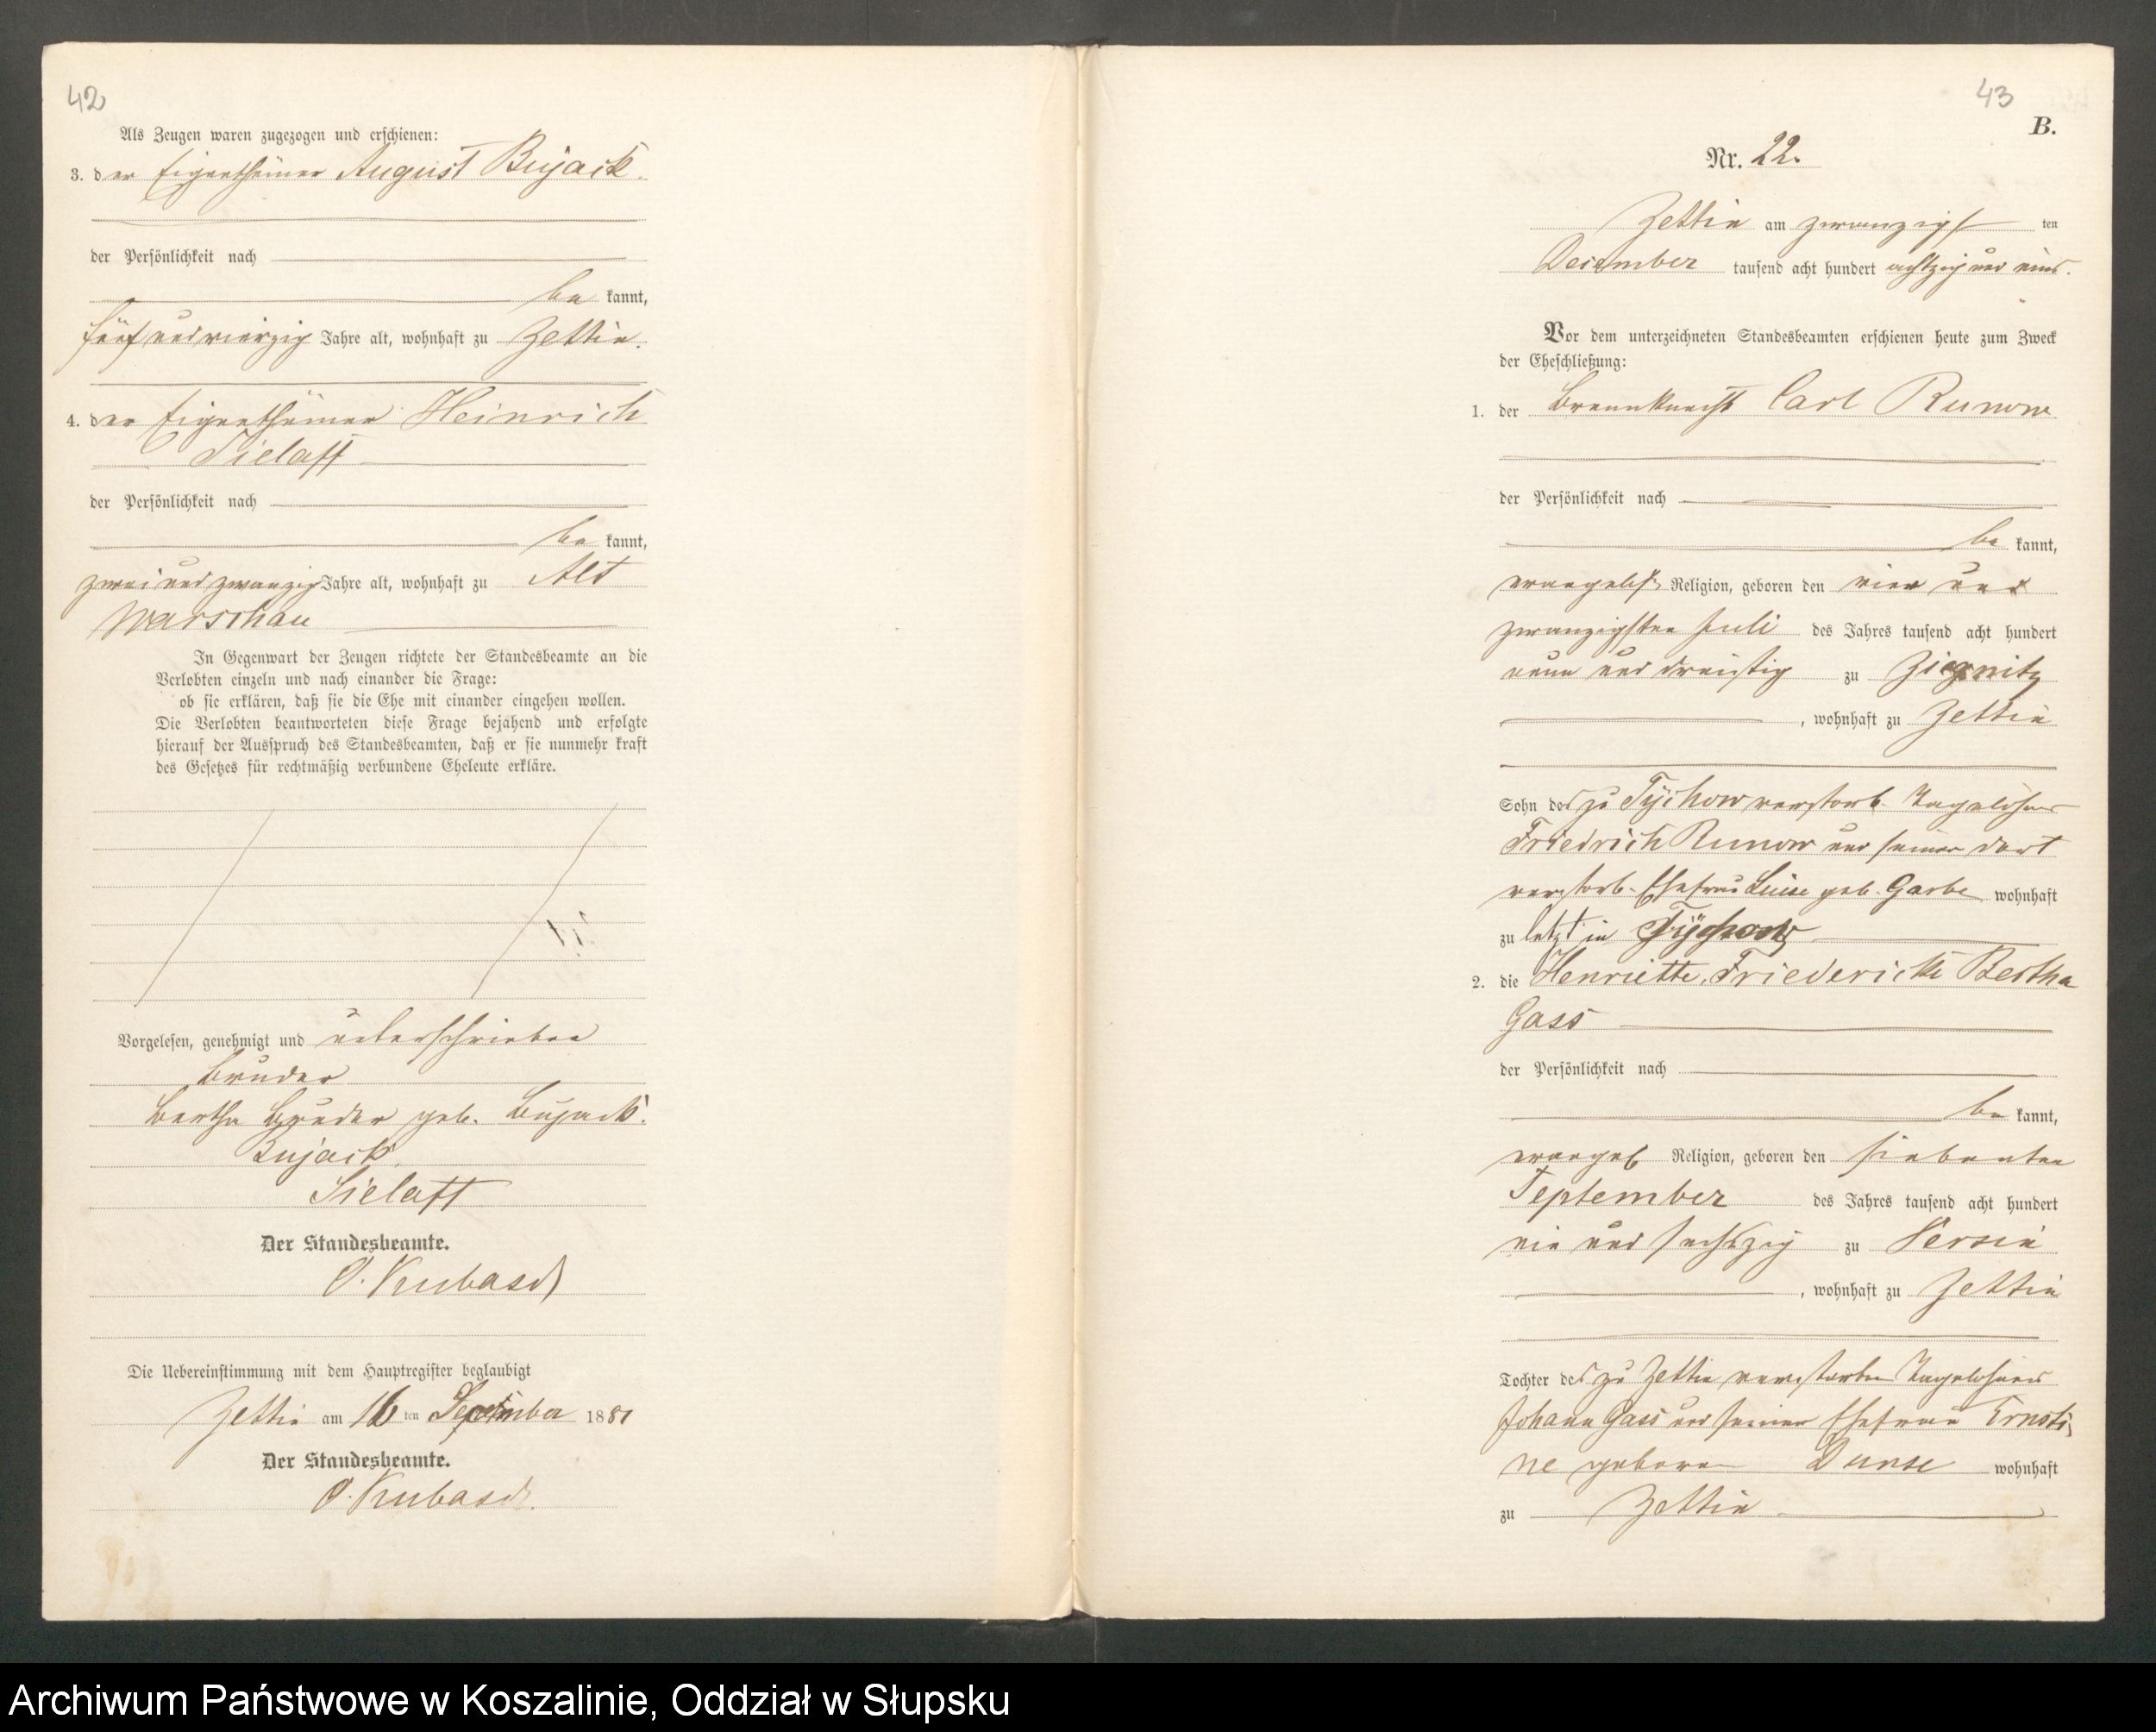 42
Als Zeugen waren zugezogen und erschienen:
3. der Eigenthümer August Bujack.
der Persönlichkeit nach
be kannt,
fünf und vierzig Jahre alt, wohnhaft zu Zettin.
4. der Eigenthümer Heinrich
Sielaff
der Persönlichkeit nach
be kannt,
zwei und zwanzig Jahre alt, wohnhaft zu Alt
Warschau
In Gegenwart der Zeugen richtete der Standesbeamte an die
Verlobten einzeln und nach einander die Frage:
ob sie erklären, daß sie die Ehe mit einander eingehen wollen.
Die Verlobten beantworteten diese Frage bejahend und erfolgte
hierauf der Ausspruch des Standesbeamten, daß er sie nunmehr kraft
des Gesetzes für rechtmäßig verbundene Eheleute erkläre.
Vorgelesen, genehmigt und unterschrieben
Bruder
Bertha Bruder geb. Bujack.
Bujack
Sielaff
Der Standesbeamte.
O. Kubasch
Die Uebereinstimmung mit dem Hauptregister beglaubigt
Zettin am 16 ten September 1881
Der Standesbeamte.
O. Kubasch.
43
B.
Nr. 22.
Zettin am zwanzigst ten
December tausend acht hundert achtzig und eins.
Vor dem unterzeichneten Standesbeamten erschienen heute zum Zweck
der Eheschließung:
1. der Brennknecht Carl Runow
der Persönlichkeit nach
be kannt,
evangelisch Religion, geboren den vier und
zwanzigsten Juli des Jahres tausend acht hundert
neun und dreißig zu
, wohnhaft zu Zettin
Sohn des zu Tychow verstorb. Tagelöhner
Friedrich Runow und seiner dort
verstorb. Ehefrau Luise geb. Garbe wohnhaft
zu letzt in Tychow
2. die Henriette, Friedericke Bertha
Gass
der Persönlichkeit nach
be kannt,
evangel Religion, geboren den siebenten
September des Jahres tausend acht hundert
ein und sechszig zu Versin
, wohnhaft zu Zettin
Tochter des zu Zettin verstorben Tagelöhners
Johann Gass und seiner Ehefrau Ernsti
ne geboren Dunse wohnhaft
zu Zettin
Archiwum Państwowe w Koszalinie, Oddział w Słupsku